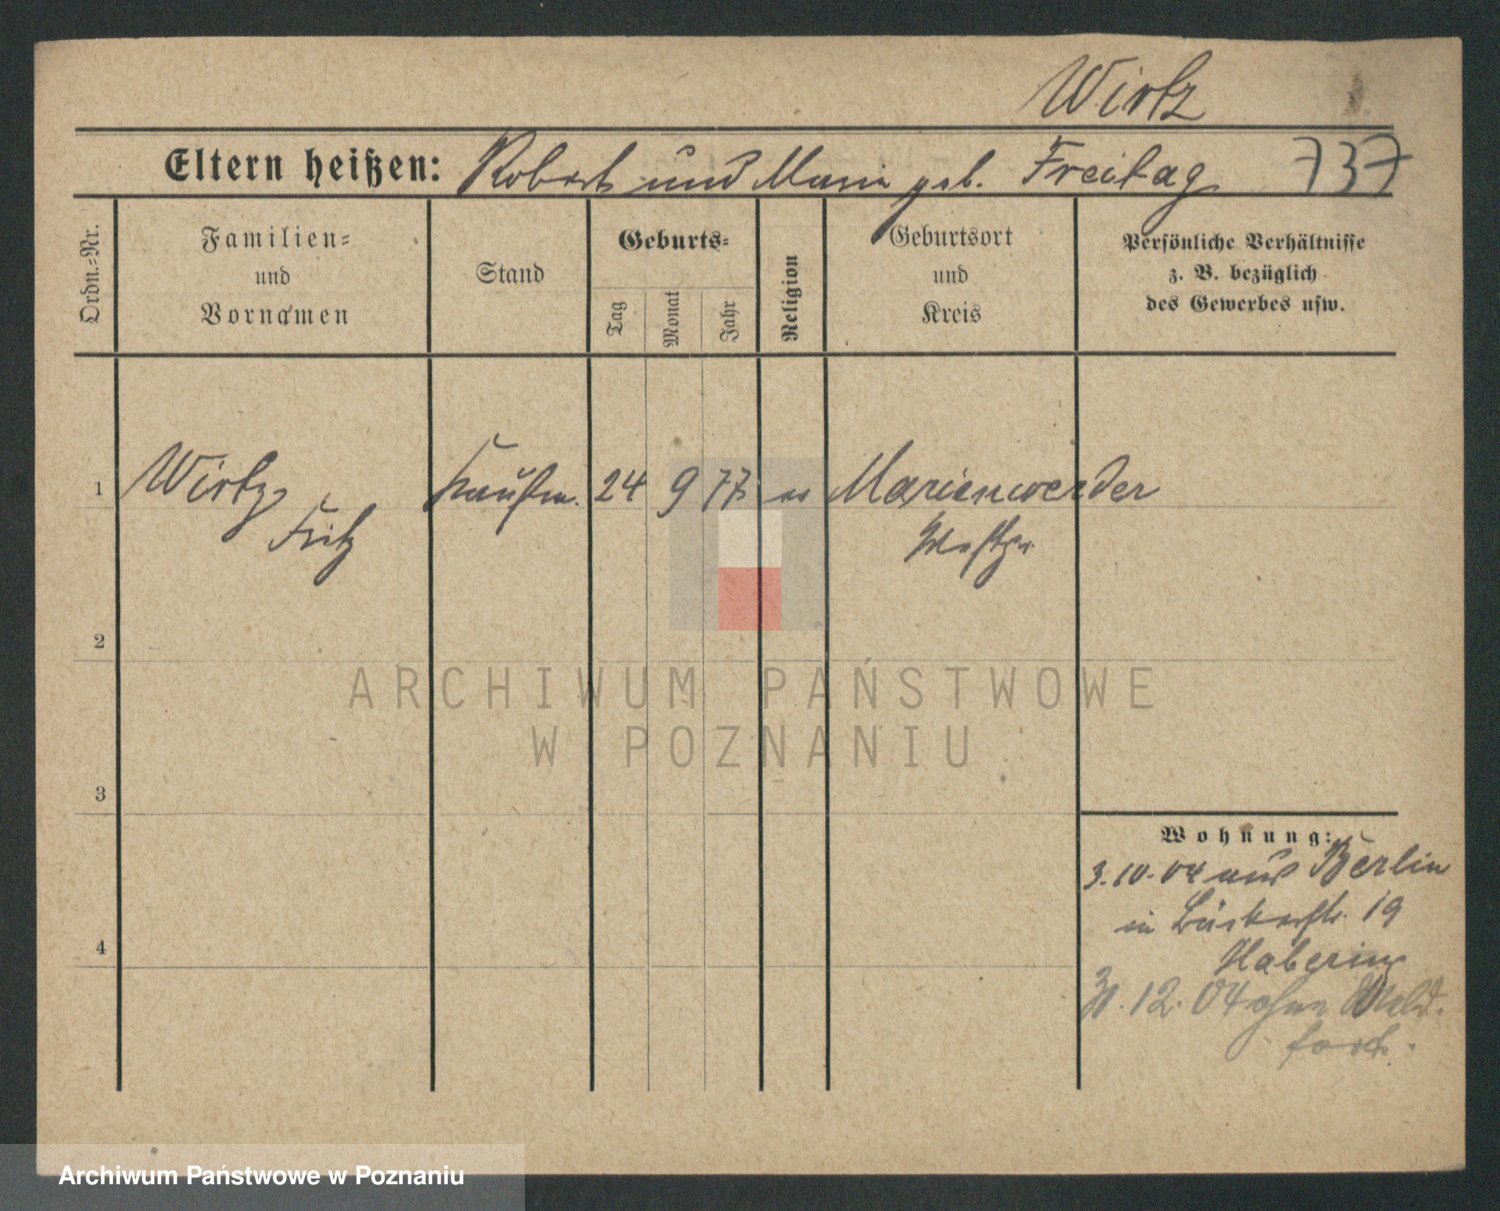 Wirtz
Eltern heißen: Robert und Maria geb. Freitag 737
Ordn.-Nr.
Familien-
und
Vornamen
Stand
Geburts-
Tag
Monat
Jahr
Religion
Geburtsort
und
Kreis
Persönliche Verhältnisse
z. B. bezüglich
des Gewerbes usw.
1 Wirtz Kaufm. 24 9 77 ev Marienwerder
Fritz Westpr.
2
3
4
Wohnung:
3.10.04 aus Berlin
in Bäckerstr. 19
Habering
31.12.04 ohne Meld.
fort.
ARCHIWUM PAŃSTWOWE
W POZNANIU
Archiwum Państwowe w Poznaniu